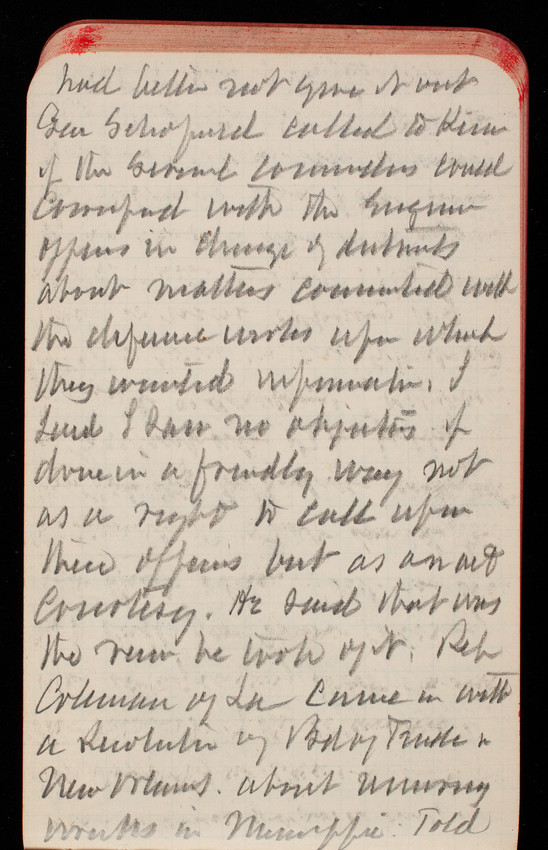 had better not give it out
Gen Schofield called to know
if the several commanders could
correspond with the Engineer
officers in charge of districts
about matters connected with
the defence works upon which
they wanted information. I
said I saw no objection if
done in a friendly way not
as a right to call upon
these officers but as an act
Courtesy. He said that was
the view he took of it. Rep
Coleman of La came in with
a resolution of Bd of Trade
New Orleans. about removing
wrecks in Mississippi. Told